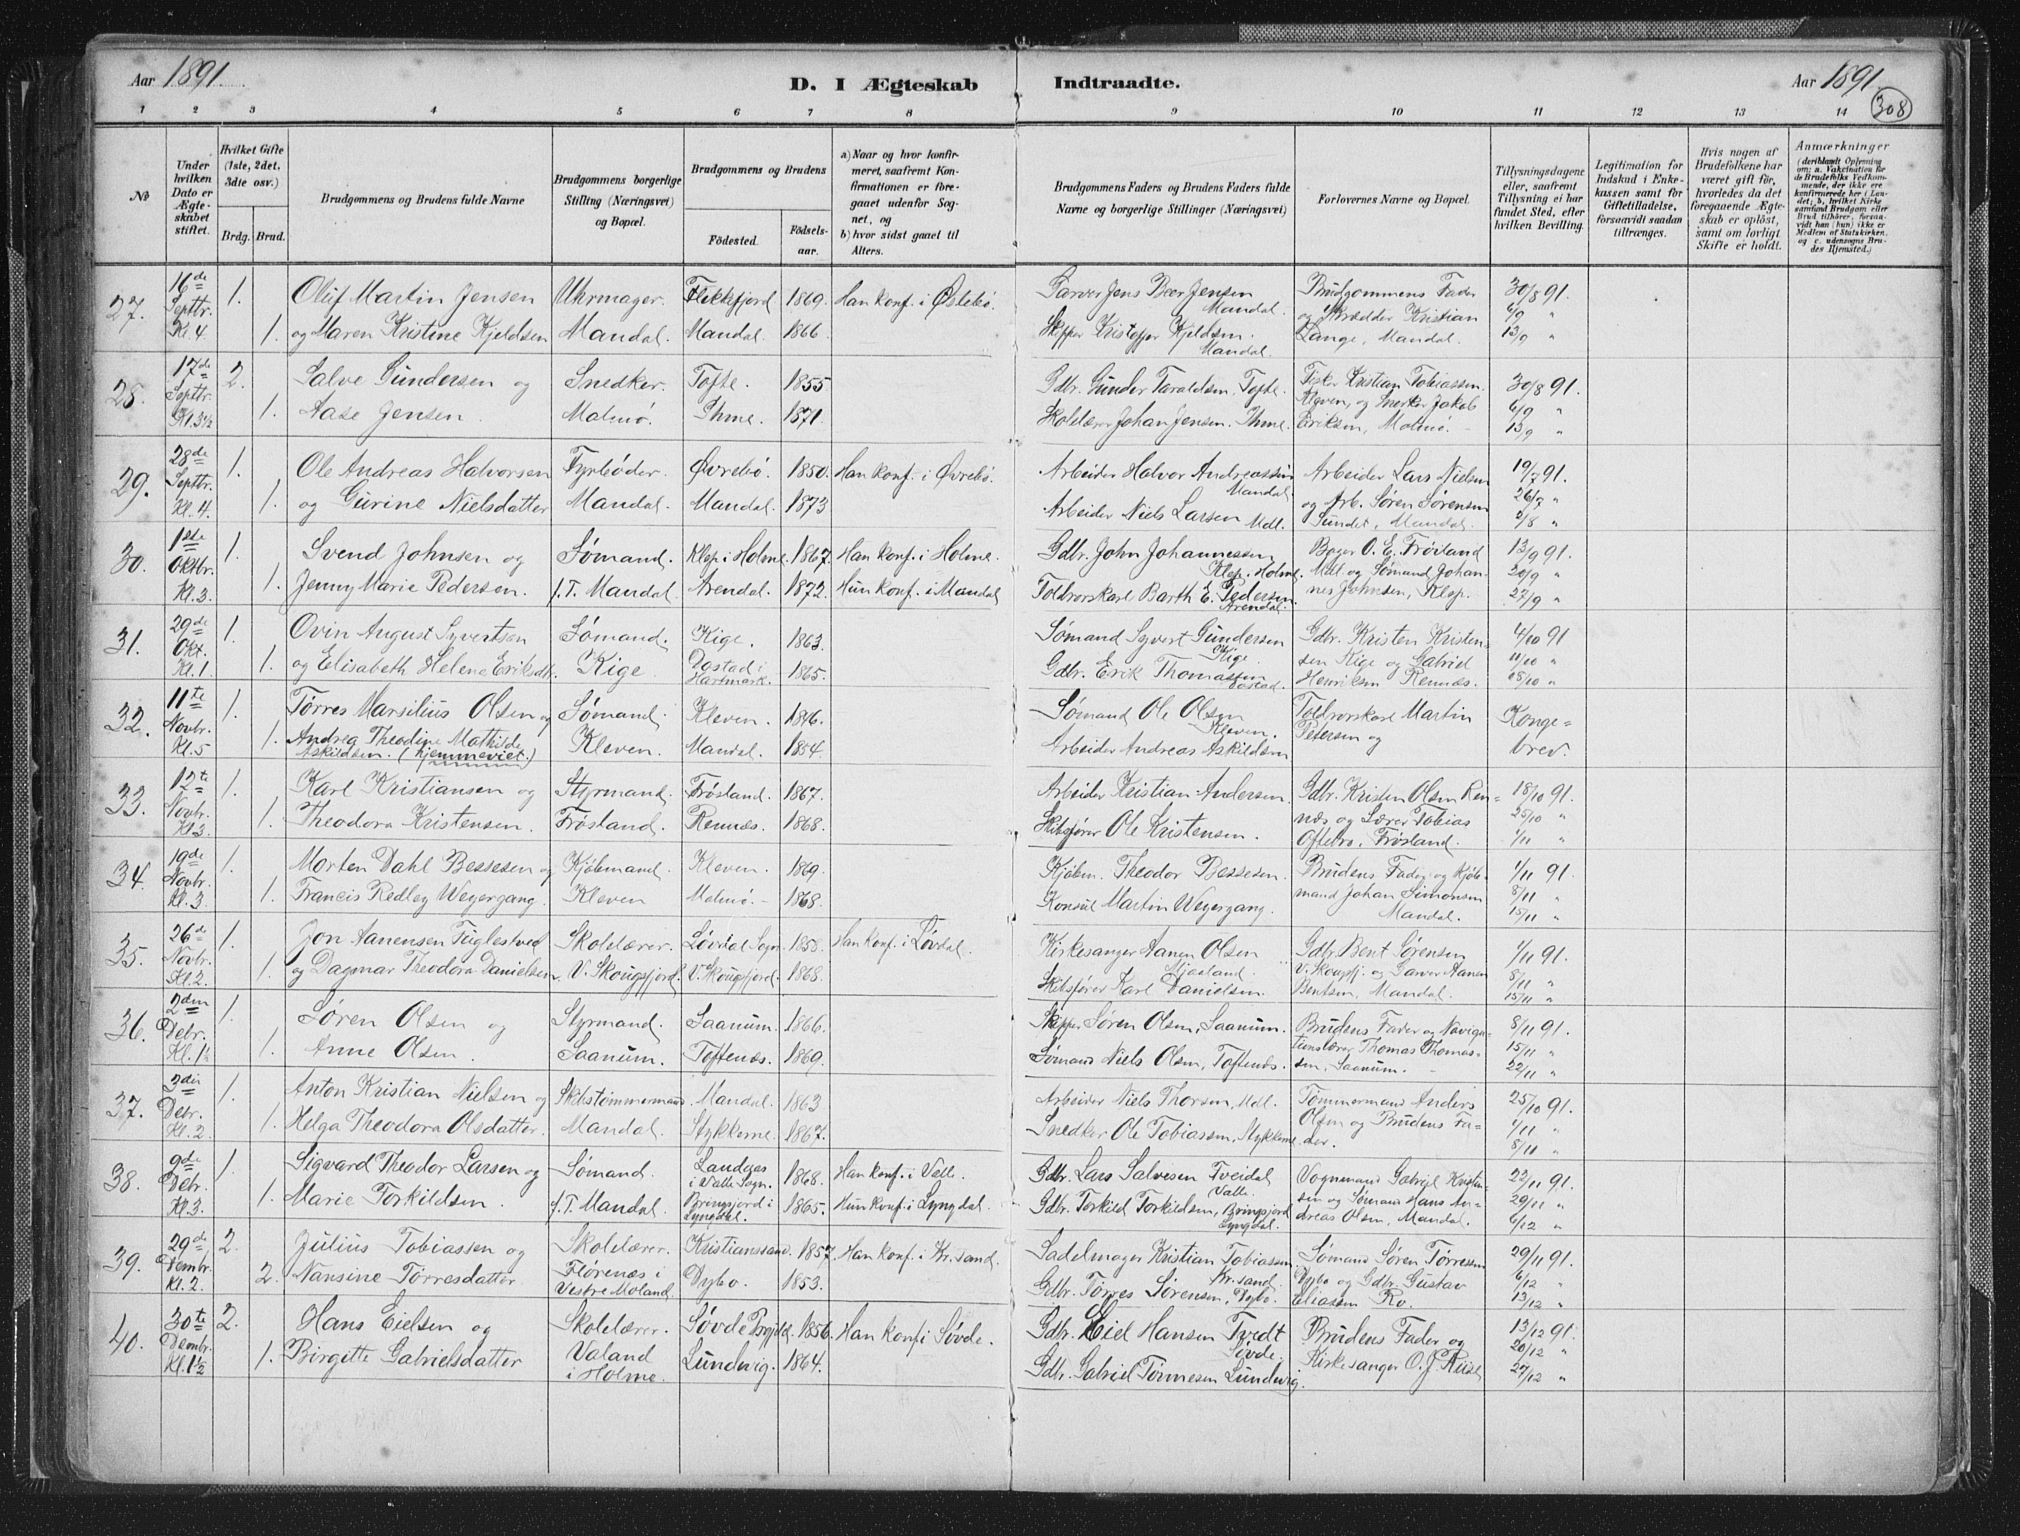 Aar 1891.
D. I Ægteskab Indtraadte.
Aar 1891.
308
1 2 3 4 5 6 7 8 9 10 11 12 13 14
№
Under hvilken Dato er Ægteskabet stiftet.
Hvilket Gifte (1ste, 2det, 3die osv.)
Brdg. Brud.
Brudgommens og Brudens fulde Navne
Brudgommens borgerlige Stilling (Næringsvei) og Bopæl.
Brudgommens og Brudens
Fødested. Fødselsaar.
a) Naar og hvor konfirmeret, saafremt Konfirmationen er foregaaet udenfor Sognet, og
b) hvor sidst gaaet til Alters.
Brudgommens Faders og Brudens Faders fulde Navne og borgerlige Stillinger (Næringsvei)
Forlovernes Navne og Bopæl.
Tillysningsdagene eller, saafremt Tillysning ei har fundet Sted, efter hvilken Bevilling.
Legitimation for Indskud i Enkekassen samt for Giftetilladelse, forsaavidt saadan tiltrænges.
Hvis nogen af Brudefolkene har været gift før, hvorledes da det foregaaende Ægteskab er opløst, samt om lovligt Skifte er holdt.
Anmærkninger
27. 16de Septbr. Kl. 4 1. Oluf Martin Jensen Uhrmager. Flekkefjord 1869. Han konf. i Øslebø. Garver Jens Beer Jensen Mandal. Brudgommens Fader 30/8 91.
1. og Maren Kristine Kjeldsen Mandal. Mandal. 1866. Skipper Kristoffer Kjeldsen. Mandal. og Skrædder Kristian Lange, Mandal. 6/9 " 13/9 "
28. 17de Septbr. Kl. 3½ 2. Salve Gundersen og Snedker. Tofte. 1855 Gdbr. Gunder Taraldsen, Tofte. Fisker Kristian Tobiassen 30/8 91.
1. Aase Jensen. Malmø. Ihme. 1871. Skolelærer Johan Jensen. Ihme. Kleven, og Snerker Jakob Eriksen, Malmø. 6/9 " 13/9 "
29. 28de Septbr. Kl. 4. 1. Ole Andreas Halvorsen Fyrbøder. Øvrebø. 1850. Han konf. i Øvrebø. Arbeider Halvor Andreassen Mandal. Arbeider Lars Nielsen 19/7 91.
1. og Gurine Nielsdatter Mandal. Mandal. 1873 Arbeider Niels Larsen Mdl. og Arb. Søren Sørensen Sundet, Mandal. 26/7 " 2/8 "
30. 1ste Oktbr. Kl. 3. 1. Svend Johnsen og Sømand. Klep i Holme. 1867. Han konf. i Holme. Gdbr. John Johannessen Klep, Holme. Bager O. E. Frøsland 13/9 91.
1. Jenny Marie Pedersen. f. T. Mandal. Arendal. 1872. Hun konf. i Mandal Toldrorskarl Barth E. Pedersen. Arendal. Mdl. og Sømand Johannes Johnsen, Klep. 20/9 " 27/9 "
31. 29de Okt. Kl. 1 1. Ovin August Syvertsen Sømand. Kige. 1863. Sømand Syvert Gundersen Kige. Gdbr. Kristen Kristen= 4/10 91
1. og Elisabeth Helene Eriksdtr. Kige. Dostad i Hartmark. 1865. Gdbr. Erik Thomassen Dostad. sen Kige og Gabriel Henriksen Rennæs. 11/10 " 18/10 "
32. 11te Novbr. Kl. 5 1. Tørres Marsilius Olsen og Sømand. Kleven. 1846. Sømand Ole Olsen Kleven. Toldrorskarl Martin Konge=
1. Andrea Theodine Mathilde Askildsen. (hjemmeviet.) Kleven. Mandal. 1854. Arbeider Andreas Askildsen Petersen og brev.
33. 12te Novbr. Kl. 3 1. Karl Kristiansen og Styrmand. Frøsland. 1867. Arbeider Kristian Andersen. Gdbr. Kristen Olsen Ren= 18/10 91.
1. Theodora Kristensen. Frøsland. Rennæs. 1868. Skibsfører Ole Kristensen. næs og Lærer Tobias Oftebro, Frøsland. 25/10 " 1/11 "
34. 19de Novbr. Kl. 3 1. Morten Dahl Bessesen og Kjøbmand. Kleven. 1869. Kjøbm. Theodor Bessesen. Brudens Fader og Kjøb= 1/11 91.
1. Francis Redley Weyergang. Kleven Malmø. 1868. Konsul Martin Weyergang. mand Johan Simonsen Mandal. 8/11 " 15/11 "
35. 26de Novbr. Kl. 2 1. Jon Aanensen Fuglestved Skolelærer. Løvdal Sogn. 1850. Han konf. i Løvdal. Kirkesanger Aanen Olsen Mjaaland. Gdbr. Bent Sørensen 1/11 91.
1. og Dagmar Theodora Danielsen V. Skougsfjord. V. Skougsfjord. 1868. Skibsfører Karl Danielsen. V. Skougsfj. og Garver Aanen Bentsen, Mandal. 8/11 " 15/11 "
36. 2den Debr. Kl. 1½ 1. Søren Olsen og Styrmand. Saanum. 1866. Skipper Søren Olsen, Saanum. Brudens Fader og Naviga= 8/11 91.
1. Anne Olsen. Saanum. Toftenæs. 1869. Sømand Niels Olsen, Toftenæs. tionslærer Thomas Thomassen, Saanum. 15/11 " 22/11 "
37. 3die Debr. Kl. 2 1. Anton Kristian Nielsen og Skibstømmermand Mandal. 1863 Arbeider Niels Thorsen, Mdl. Tømmermand Anders 25/10 91.
1. Helga Theodora Olsdatter. Mandal. Stykkerne. 1867. Snedker Ole Tobiassen, Stykkerne Olsen og Brudens Fader. 1/11 " 8/11 "
38. 9de Debr. Kl. 3. 1. Sigvard Theodor Larsen og Sømand. Landaas i Valle Sogn. 1868. Han konf. i Valle. Gdbr. Lars Salvesen Tveidal Valle. Vognmand Gabriel Kristen= 22/11 91.
1. Marie Torkildsen. f. T. Mandal. Bringsjord i Lyngdal. 1865. Hun konf. i Lyngdal. Gdbr. Torkild Torkildsen, Bringsjord Lyngdal. sen og Sømand Hans Andreas Olsen, Mandal. 29/11 " 6/12 "
39. 29de Dembr. Kl. 2. 2. Julius Tobiassen og Skolelærer. Kristianssand. 1857. Han konf. i Kr.sand. Sadelmager Kristian Tobiassen Kr.sand. Sømand Søren Tørressen 29/11 91.
2. Nansine Tørresdatter Flørenæs i Vestre Moland. Dybo. 1853. Gdbr. Tørres Sørensen, Dybo. Dybo og Gdbr. Gustav Eliassen Ro. 6/12 " 13/12 "
40. 30te Dembr. Kl. 1½ 2. Hans Eielsen og Skolelærer. Søvde Prgjeld. 1856. Han konf. i Søvde. Gdbr. Eiel Hansen Tvedt Søvde. Brudens Fader og 13/12 91.
1. Birgitte Gabrielsdatter Valand i Holme. Lundevig. 1864. Gdbr. Gabriel Tønnesen Lundevig. Kirkesanger O. J. 20/12 " 27/12 "